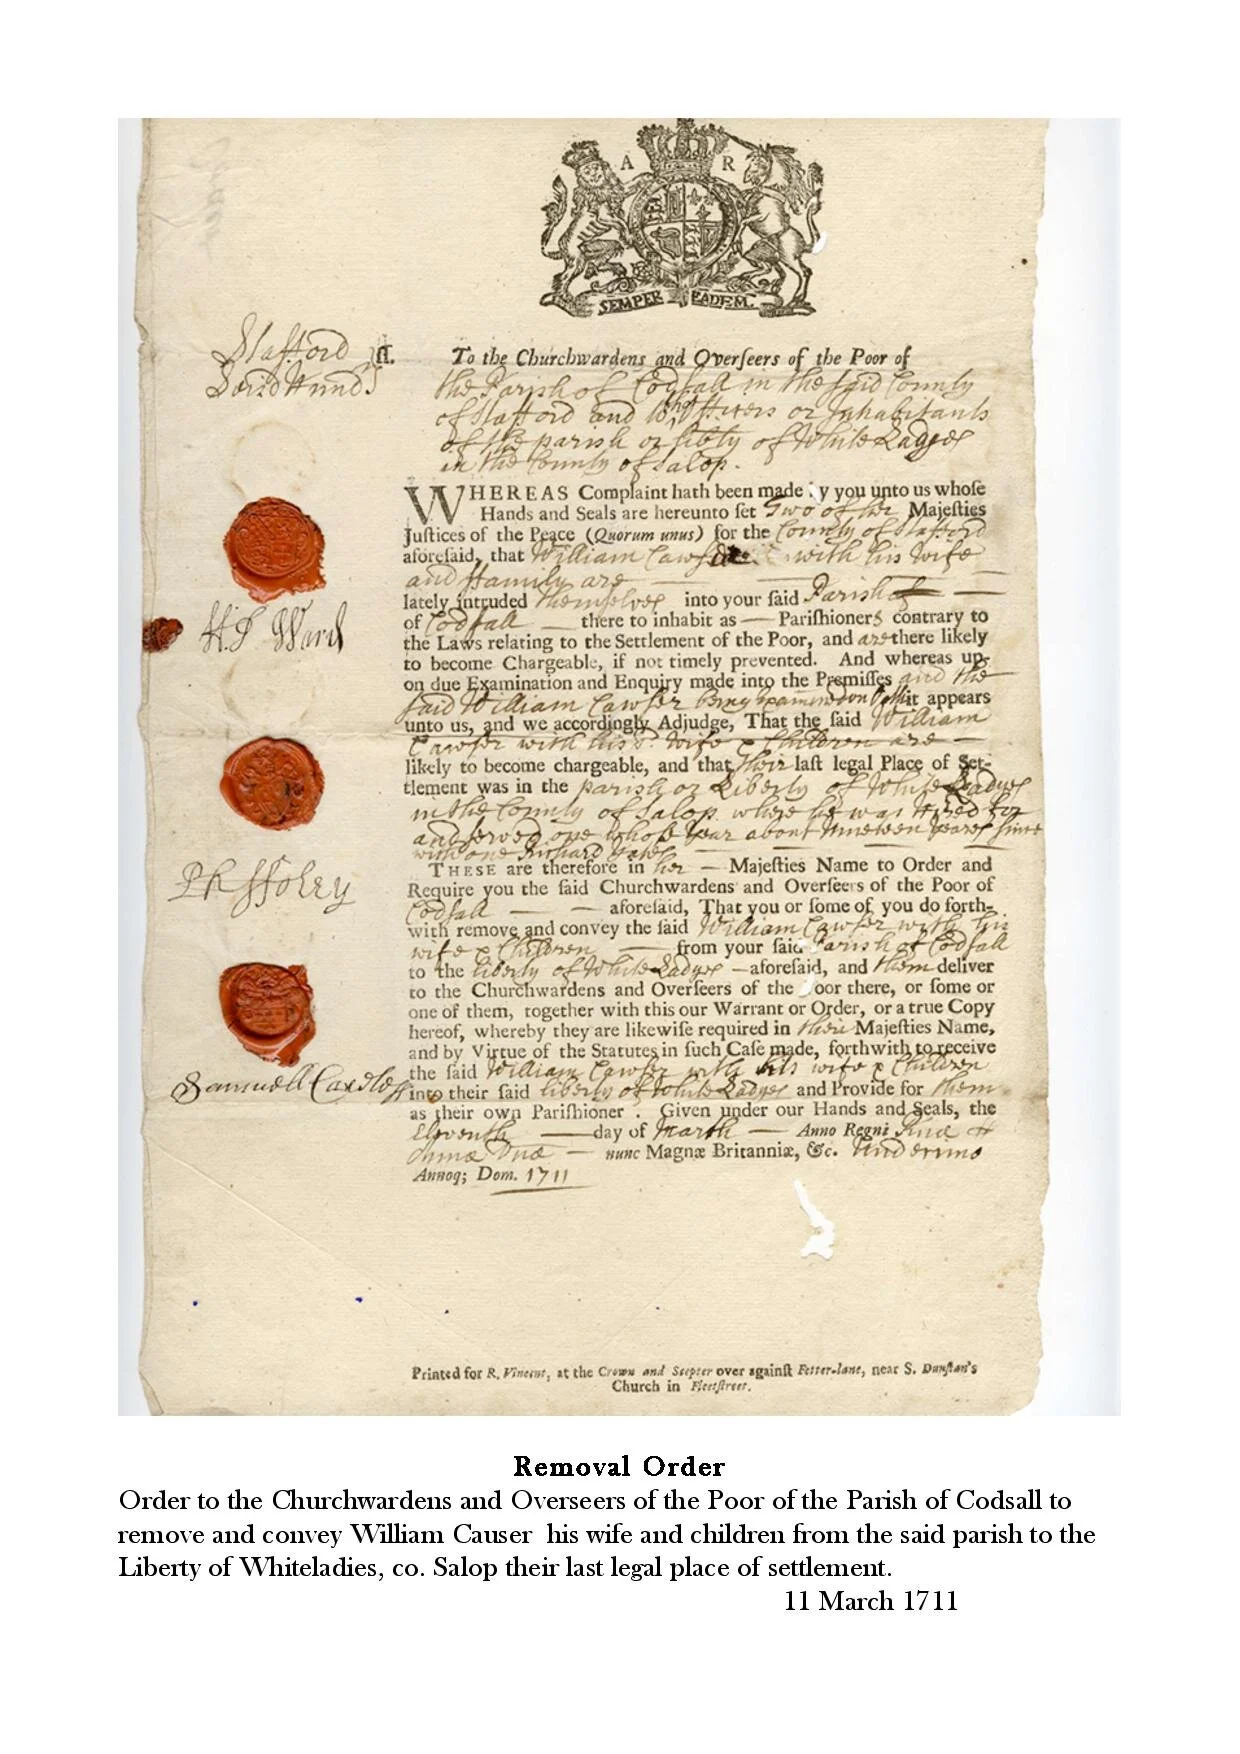 A R
SEMPER EADEM.
Stafford
ſſ.
To the Churchwardens and Overſeers of the Poor of
the Pariſh of Codſall in the ſaid County
of Stafford and to Officers or Inhabitants
of the pariſh or libty of White Ladyes
in the County of Salop.
WHEREAS Complaint hath been made by you unto us whoſe
Hands and Seals are hereunto ſet Two of her Majeſties
Juſtices of the Peace (Quorum unus) for the County of Stafford
aforeſaid, that William with his wife
and ffamily are
lately intruded themſelves into your ſaid Pariſh
of Codſall there to inhabit as Pariſhioners contrary to
the Laws relating to the Settlement of the Poor, and are there likely
to become Chargeable, if not timely prevented. And whereas up-
on due Examination and Enquiry made into the Premiſſes and the
ſaid William Cawſer being on it appears
unto us, and we accordingly Adjudge, That the ſaid William
Cawſer with his wife & Children are
likely to become chargeable, and that their laſt legal Place of Set-
tlement was in the pariſh or Liberty of White Ladyes
in the County of Salop where he was Hired for
and ſerved one whole Year about Nineteen Yeares ſince
with one Richard
THESE are therefore in her Majeſties Name to Order and
Require you the ſaid Churchwardens and Overſeers of the Poor of
Codſall aforeſaid, That you or ſome of you do forth-
with remove and convey the ſaid William Cawſer with his
wife & Children from your ſaid Pariſh of Codſall
to the liberty of White Ladyes aforeſaid, and them deliver
to the Churchwardens and Overſeers of the Poor there, or ſome or
one of them, together with this our Warrant or Order, or a true Copy
hereof, whereby they are likewiſe required in their Majeſties Name,
and by Virtue of the Statutes in ſuch Caſe made, forthwith to receive
the ſaid William Cawſer with his wife & Children
into their ſaid liberty of White Ladyes and Provide for them
as their own Pariſhioner . Given under our Hands and Seals, the
Eleventh day of March Anno Regni
Annæ nunc Magnæ Britanniæ, &c. Undecimo
Annoq; Dom. 1711
Ward
Ph ffoley
Samuell
Printed for R. Vincent, at the Crown and Scepter over againſt Fetter-lane, near S. Dunſtan's
Church in Fleetſtreet.
Removal Order
Order to the Churchwardens and Overseers of the Poor of the Parish of Codsall to
remove and convey William Causer his wife and children from the said parish to the
Liberty of Whiteladies, co. Salop their last legal place of settlement.
11 March 1711